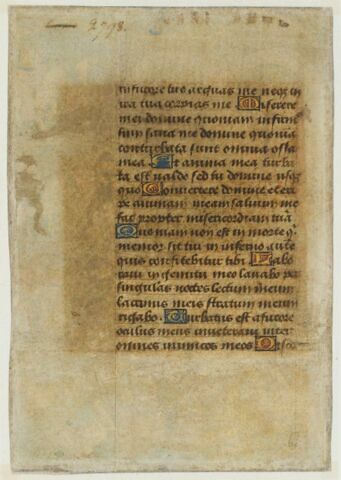 2798.
in furore tuo arguas me neq; in
ira tua corripias me Miserere
mei domine quoniam infirm
sum sana me domine quonia
conturbata sunt omnia ossa
mea Et anima mea turba
ta est valde sed tu domine usq;
quo Convertere domine et eri
pe animam meam salvum me
fac propter misericordiam tuā
Quoniam non est in morte q
memor sit tui in inferno aute
quis confitebitur tibi Labo
ravi in gemitu meo lavabo per
singulas noctes lectum meum
lacrimis meis stratum meum
rigabo. Turbatus est a furore
oculus meus inveteravi inter
omnes inimicos meos Disce